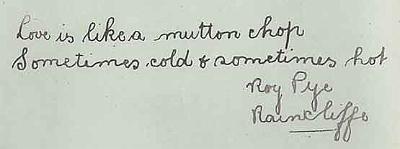 Love is like a mutton chop
Sometimes cold & sometimes hot
Roy Pye
Raincliffe